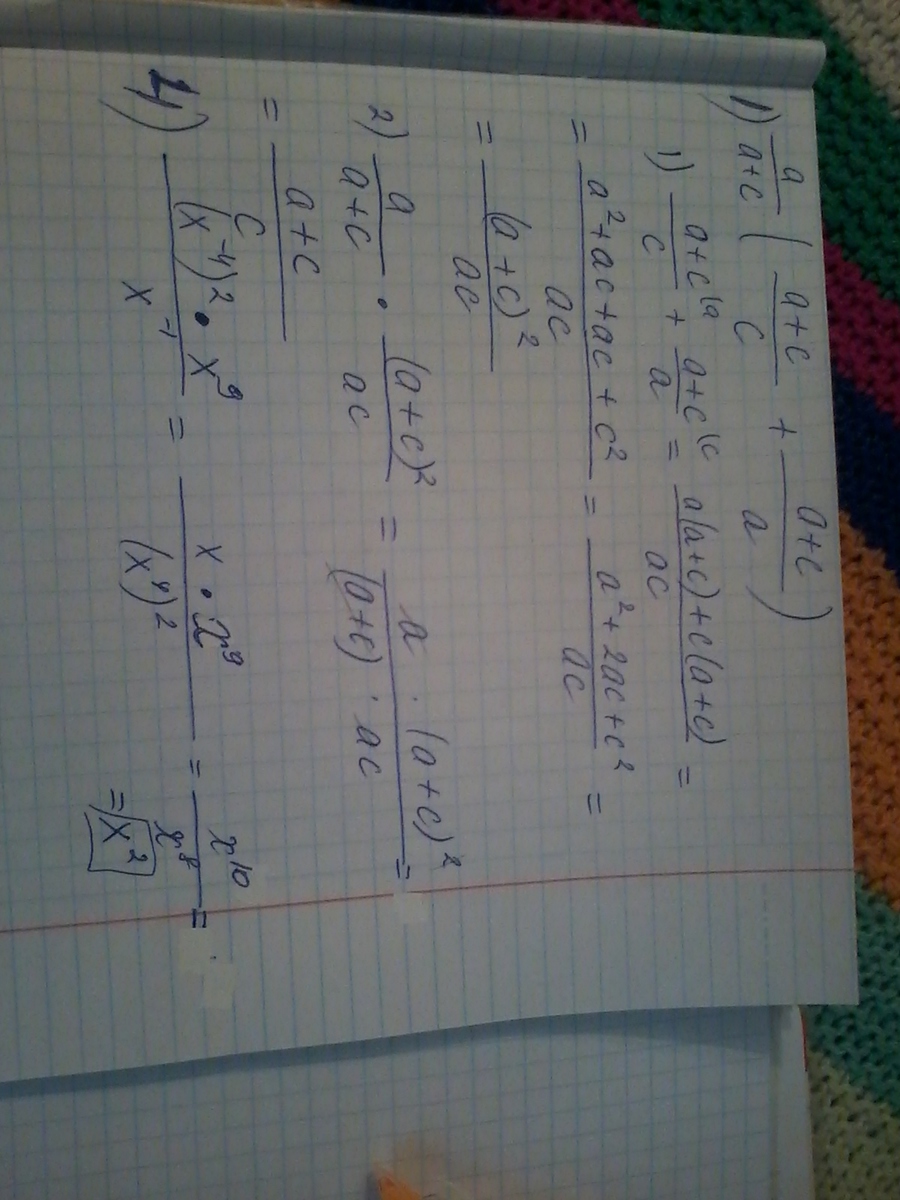 1) a/(a+c) ( (a+c)/c + (a+c)/a )
1) (a+c)/c ⁽ᵃ + (a+c)/a ⁽ᶜ = (a(a+c)+c(a+c))/(ac) =
= (a²+ac+ac+c²)/(ac) = (a²+2ac+c²)/(ac) =
= (a+c)²/(ac)
2) a/(a+c) · (a+c)²/(ac) = (a·(a+c)²)/((a+c)·ac) =
= (a+c)/c
4) ((x⁻⁴)²·x⁹)/(x⁻¹) = (x·x⁹)/((x⁴)²) = x¹⁰/x⁸ =
= x²